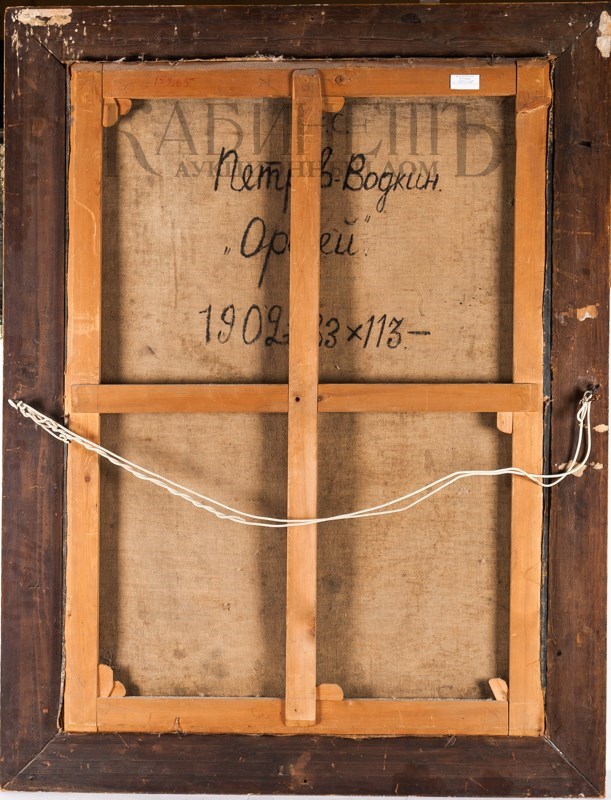 КАБИНЕТЪ
АУКЦИОННЫЙ ДОМ
Петров-Водкин.
„Орфей".
1902-83×113.-